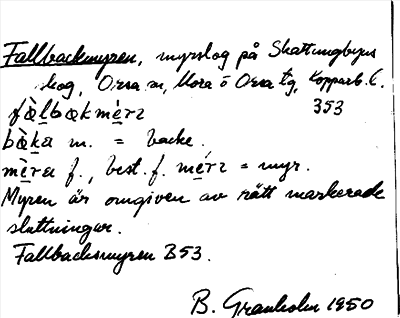 Fallbackmyren, myrslog på Skattungbyns
skog, Orsa sn, Mora o Orsa tg, Kopparb. l.
fàlbakmèrɪ 353
bàka m. = backe.
mèra f., best. f. mérɪ = myr.
Myren är omgiven av rätt markerade
sluttningar.
Fallbacksmyren B53.
B. Granholm 1950